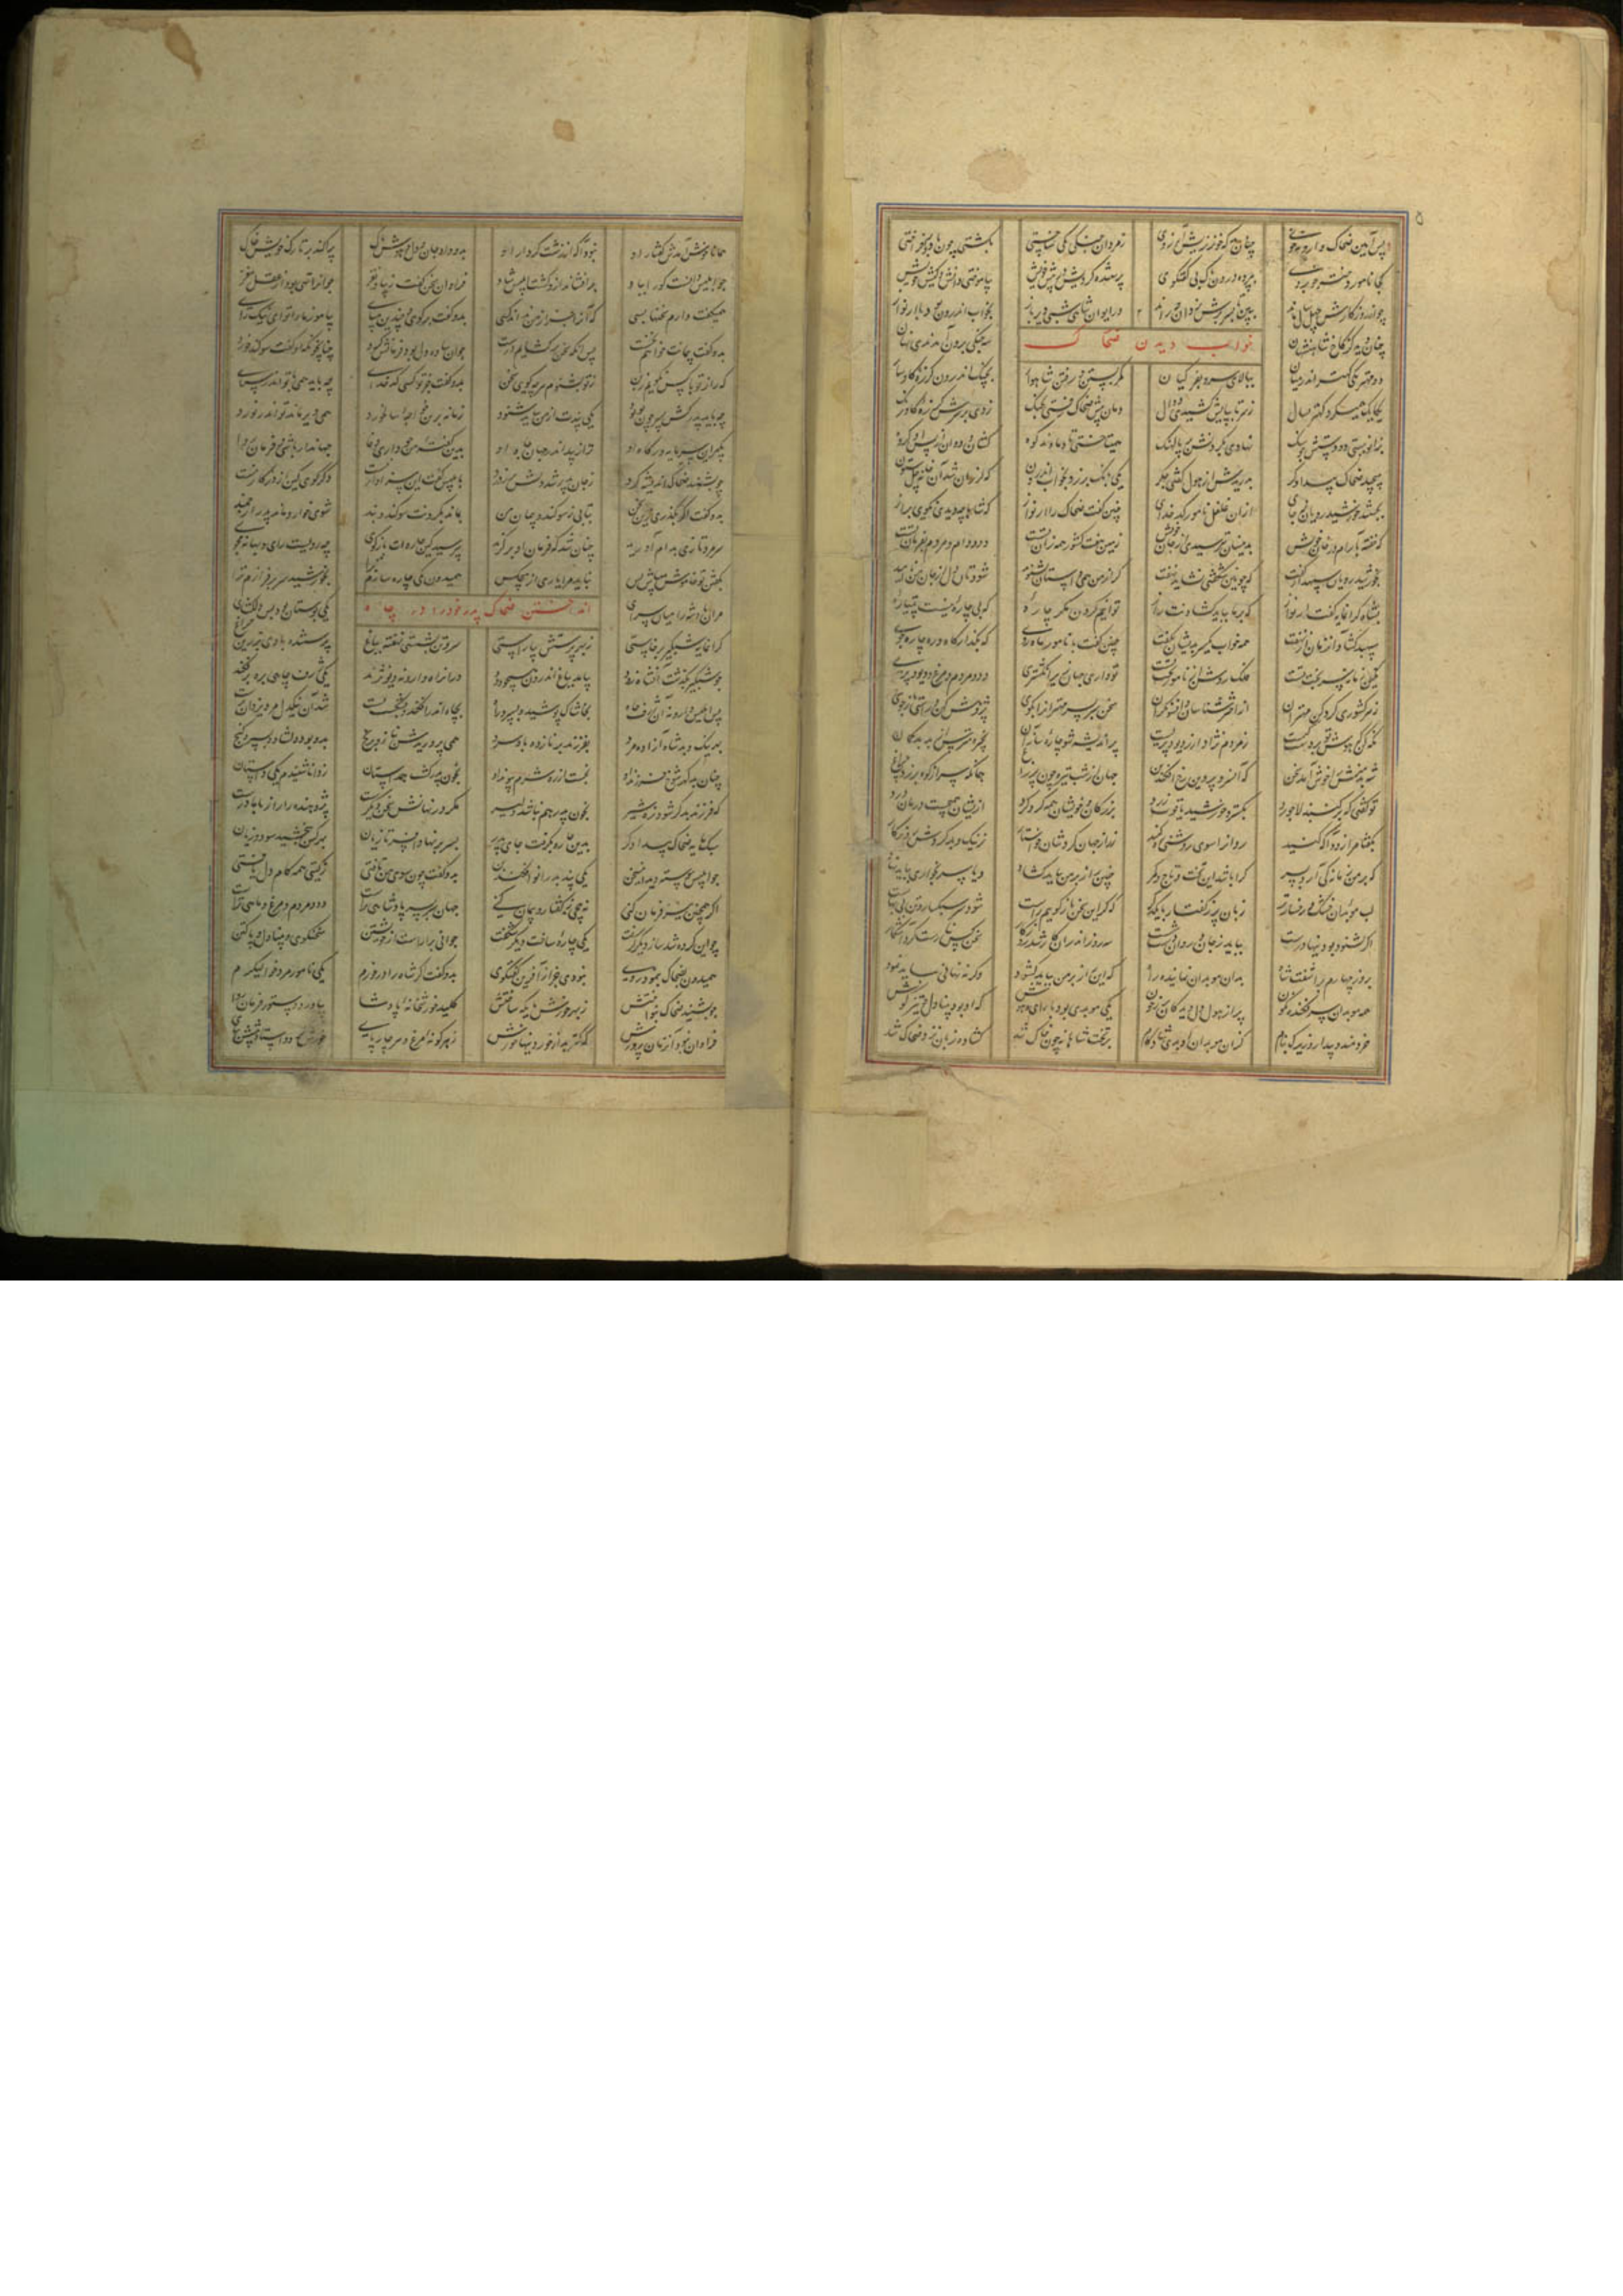 پس آیین ضحاک وارونه خوی چنان بد که چون زو بدش آرزوی ز مردان جنگی یکی خواستی بکشتی چو با دیو برخاستی
کجا نامور دختر خوبروی بپرده درون پاک بی گفتگوی پرستنده کردیش در پیش خویش
چو از روزگارش چهل سال ماند ببین تا بسر برش یزدان چه راند در ایوان شاهی شبی دیریاز بخواب اندرون بود با ارنواز
چنان دید کز کاخ شاهنشهان سه جنگی برون آمدی ناگهان
خواب دیدن ضحاک
دو مهتر یکی کهتر اندر میان ببالای سرو و بفر کیان کمر بستن و رفتن شاهوار بچنگ اندرون گرزه گاوسار
ز سر تا بپایش کشیدی دوال دمان پیش ضحاک رفتی بجنگ زدی بر سرش گرزه گاورنگ
نهادی بگردنش بر پالهنگ همیتاختی تا دماوند کوه کشان و دوان از پس او گروه
بپیچید ضحاک بیدادگر بدریدش از هول گفتی جگر یکی بانگ برزد بخواب اندرون که لرزان شد آن خانه
بجستند خورشید رویان ز جای ازان غلغل نامور کدخدای چنین گفت ضحاک را ارنواز که شاها چه دیدی نگویی براز
که خفته بارام در خان خویش بدینسان بترسیدی از جان خویش زمین هفت کشور همه زان تست دد و دام و مردم بفرمان تست
بخورشید رویان سپهدار گفت که چونین شگفتی نشاید نهفت گر از من همی داستان بشنوید شودتان دل از جان من ناامید
بشاه گرانمایه گفت ارنواز که بر ما بباید گشادنت راز توانیم کردن مگر چاره که بی چاره نیست پتیاره
سپهبد گشاد آن نهان از نهفت همه خواب یکسر بدیشان بگفت چنین گفت با نامور ماه روی که مگذار ره چاره جوی
تو داری جهان زیر انگشتری دد و مردم و مرغ و دیو و پری
ز هر کشوری گرد کن مهتران از اخترشناسان و افسونگران سخن سر بسر مهترانرا بگوی پژوهش کن و راستی باز جوی
نگه کن که هوش تو بر دست کیست ز مردم نژاد ار ز دیو و پریست
شه پرمنش را خوش آمد سخن که آن سرو پروین رخ افکند بن جهان از شب تیره چون پر زاغ همانگه سر از کوه برزد چراغ
تو گفتی که بر گنبد لاجورد بگسترد خورشید یاقوت زرد بزرگان و خویشان همه گرد کرد از ایشان همی جست درمان درد
بگفتا مرا زود آگه کنید روانرا سوی روشنی ره کنید ز راز جهان کردشان خواستار ز نیک و بد گردش روزگار
که بر من زمانه کی آید بسر کرا باشد این تخت و تاج و کمر بباید گشاد و یا سر بخواری بباید نهاد
لب موبدان خشک و رخساره تر زبان پر ز گفتار با یکدگر که گر این سخن باز گوییم راست
اگر نشنود بودنیها درست بباید ز جان و روان دست شست سه روز اندران کار شد روزگار سخن کس نیارست کرد آشکار
بروز چهارم برآشفت شاه بدان موبدان نماینده راه که این راز بر من بباید گشود وگرنه نهانی بباید نمود
همه موبدان سر فکنده نگون پر از هول دل دیدگان پر ز خون یکی موبدی بود که او بود بینا دل و تیز گوش
خردمند و بیدار و زیرک بنام کزان موبدان او بدی شادکام بر تخت شاهانه چون خاک شد گشاده زبان نزد ضحاک شد
همانا خوش آمدش گفتار اوی نبود آگه از زشت کردار اوی بدو داد جان و دل و هوش پاک پراکند بر تارک خویش خاک
چو ابلیس دانست کو دل بداد فراوان سخن گفت زیبا و نغز جوانرا تهی بود از عقل مغز
همیگفت دارم سخنها بسی که آنرا جز از من نداند کسی بدو گفت برگوی و چندین مپای بیاموز ما را تو ای نیک رای
بدو گفت پیمانت خواهم نخست پس آنگه سخن برگشایم درست جوان ساده دل بود فرمانش کرد چنان چونکه او گفت سوگند خورد
که راز تو با کس نگویم ز بن ز تو بشنوم هرچه گویی سخن بدو گفت جز تو کسی کدخدای چه باید همی با تو اندر سرای
چه باید پدر کش پسر چون تو بود یکی پندت از من بباید شنود زمانه برین خواجه سالخورد همی دیر ماند تو اندر نورد
بگیر این سرمایه درگاه اوی ترا زیبد اندر جهان جاه اوی جهاندار باشی
چو بشنید ضحاک اندیشه کرد ز خون پدر شد دلش پر ز درد بابلیس گفت این سزاوار نیست دگر گوی کین از در کار نیست
بدو گفت اگر بگذری زین سخن بتابی ز سوگند و پیمان من بماند بگردنت سوگند و بند شوی خوار و ماند پدر ارجمند
سر مرد تازی بدام آورید چنان شد که فرمان او برگزید بپرسید کین چاره با من بگوی
نباید مرا یاری از هیچکس همیدون کی چاره سازم ترا بخورشید سر برفرازم ترا
مران پادشه را میان سرای یکی بوستان بود بس دلگشای
انداختن ضحاک پدر خود را در چاه
گرانمایه شبگیر برخاستی ز بهر پرستش بیاراستی سر و تن بشستی نهفته بباغ پرستنده با وی نبردی چراغ
بیامد بباغ اندرون دران راه وارونه دیو نژند یکی ژرف چاهی بره بر بکند
پس ابلیس وارونه آن ژرف چاه بخاشاک پوشید و بسپرد راه بچاه اندر افتاد و بشکست پست شد آن نیکدل مرد یزدان پرست
بهر نیک و بد شاه آزاده مرد بفرزند بر نازده باد سرد همی پروریدش بناز و برنج بدو بود شاد و بدو داد گنج
چنان بدگهر شوخ فرزند اوی نجست از ره شرم پیوند اوی بخون پدر گشت همداستان ز دانا شنیدم یکی داستان
که فرزند بد گر شود نره شیر بخون پدر هم نباشد دلیر مگر در نهانش سخن دیگرست پژوهنده را راز با مادرست
سبک مایه ضحاک بیدادگر بدین چاره بگرفت جای پدر بسر بر نهاد افسر تازیان بر ایشان ببخشید سود و زیان
چو ابلیس پیوسته دید آن سخن یکی پند بد را نو افکند بن بدو گفت چون سوی من تافتی ز گیتی همه کام دل یافتی
اگر همچنین نیز فرمان کنی جهان سربسر پادشاهی تراست دد و مردم و مرغ و ماهی تراست
چو این کرده شد ساز دیگر گرفت یکی چاره ساخت دیگر شگفت جوانی برآراست از خویشتن سخنگوی و بینا دل و پاک تن
همیدون بضحاک بنهاد روی نبودی جز از آفرین گفتگوی بدو گفت گر شاه را درخورم یکی نامور مرد خوالیگرم
چو بشنید ضحاک بنواختش ز بهر خورش جایگه ساختش کلید خورشخانه پادشا بیاورد دستور فرمان روا
فراوان نبود آن زمان پرورش که کمتر بد از خوردنیها خورش ز هر گونه از مرغ و از چارپای